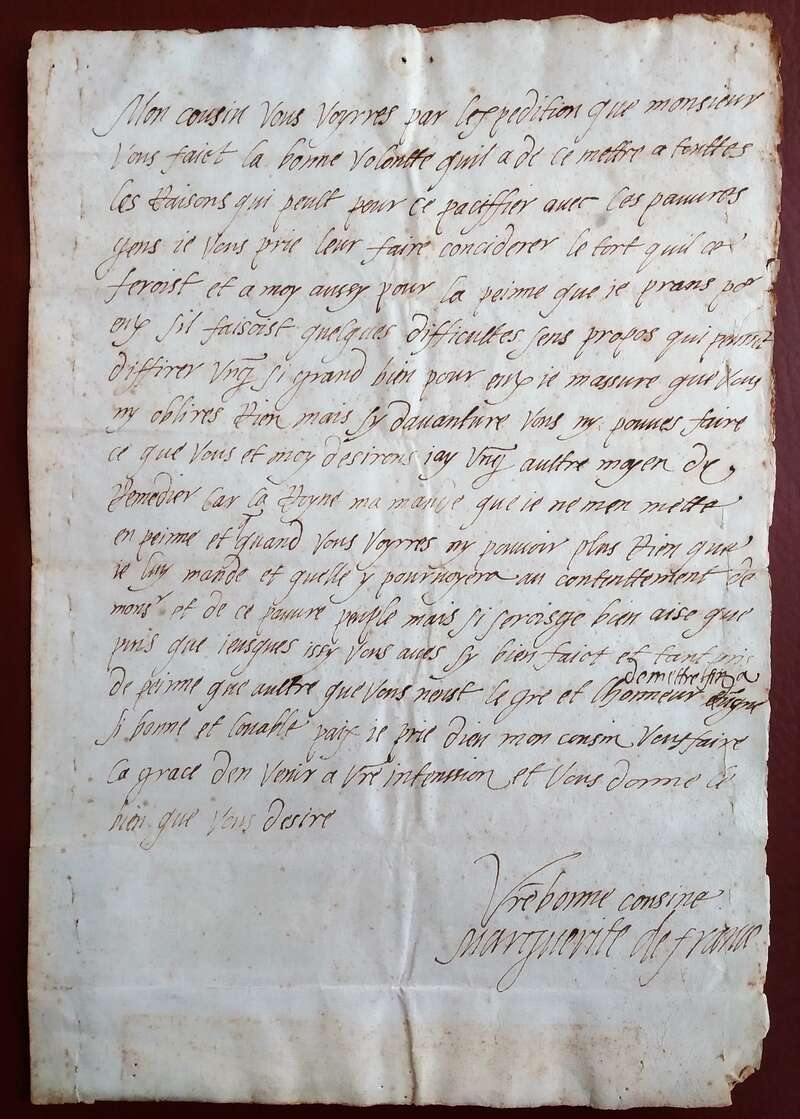 Mon cousin Vous Voyrres par lexpedition que monsieur
Vous faict la bonne Volontte quil a de ce mettre a touttes
les Raisons qui peult pour ce paciffier avec ces pauvres
gens ie vous prie leur faire conciderer le tort quil ce
feroist et a moy aussy pour la peinne que ie prans por
eux sil faisoist quelques difficultes sens propos qui
diffirer Ung si grand bien pour eux ie massure que Vous
ny oblires Rien mais sy davanture Vous ny pouves faire
ce que Vous et moy desirons jay Ung aultre moyen de
Remedier Car la Royne ma mande que ie ne men mette
en peinne et quand Vous Voyrres ny pouvoir plus Rien que
ie luy mande et quelle y pourvoyera au contenttement de
monsr et de ce pauvre peuple mais si seroisge bien aise que
puis que ieusques issy Vous aves sy bien faict et tant pris
de peinne que aultre que Vous neust le gre et lhonneur de mettre fin a
si bonne et louable paix ie prie dieu mon cousin Vous faire
la grace den Venir a Vre intenssion et Vous donne le
bien que Vous desire
Vre bonne cousine
Marguerite de france